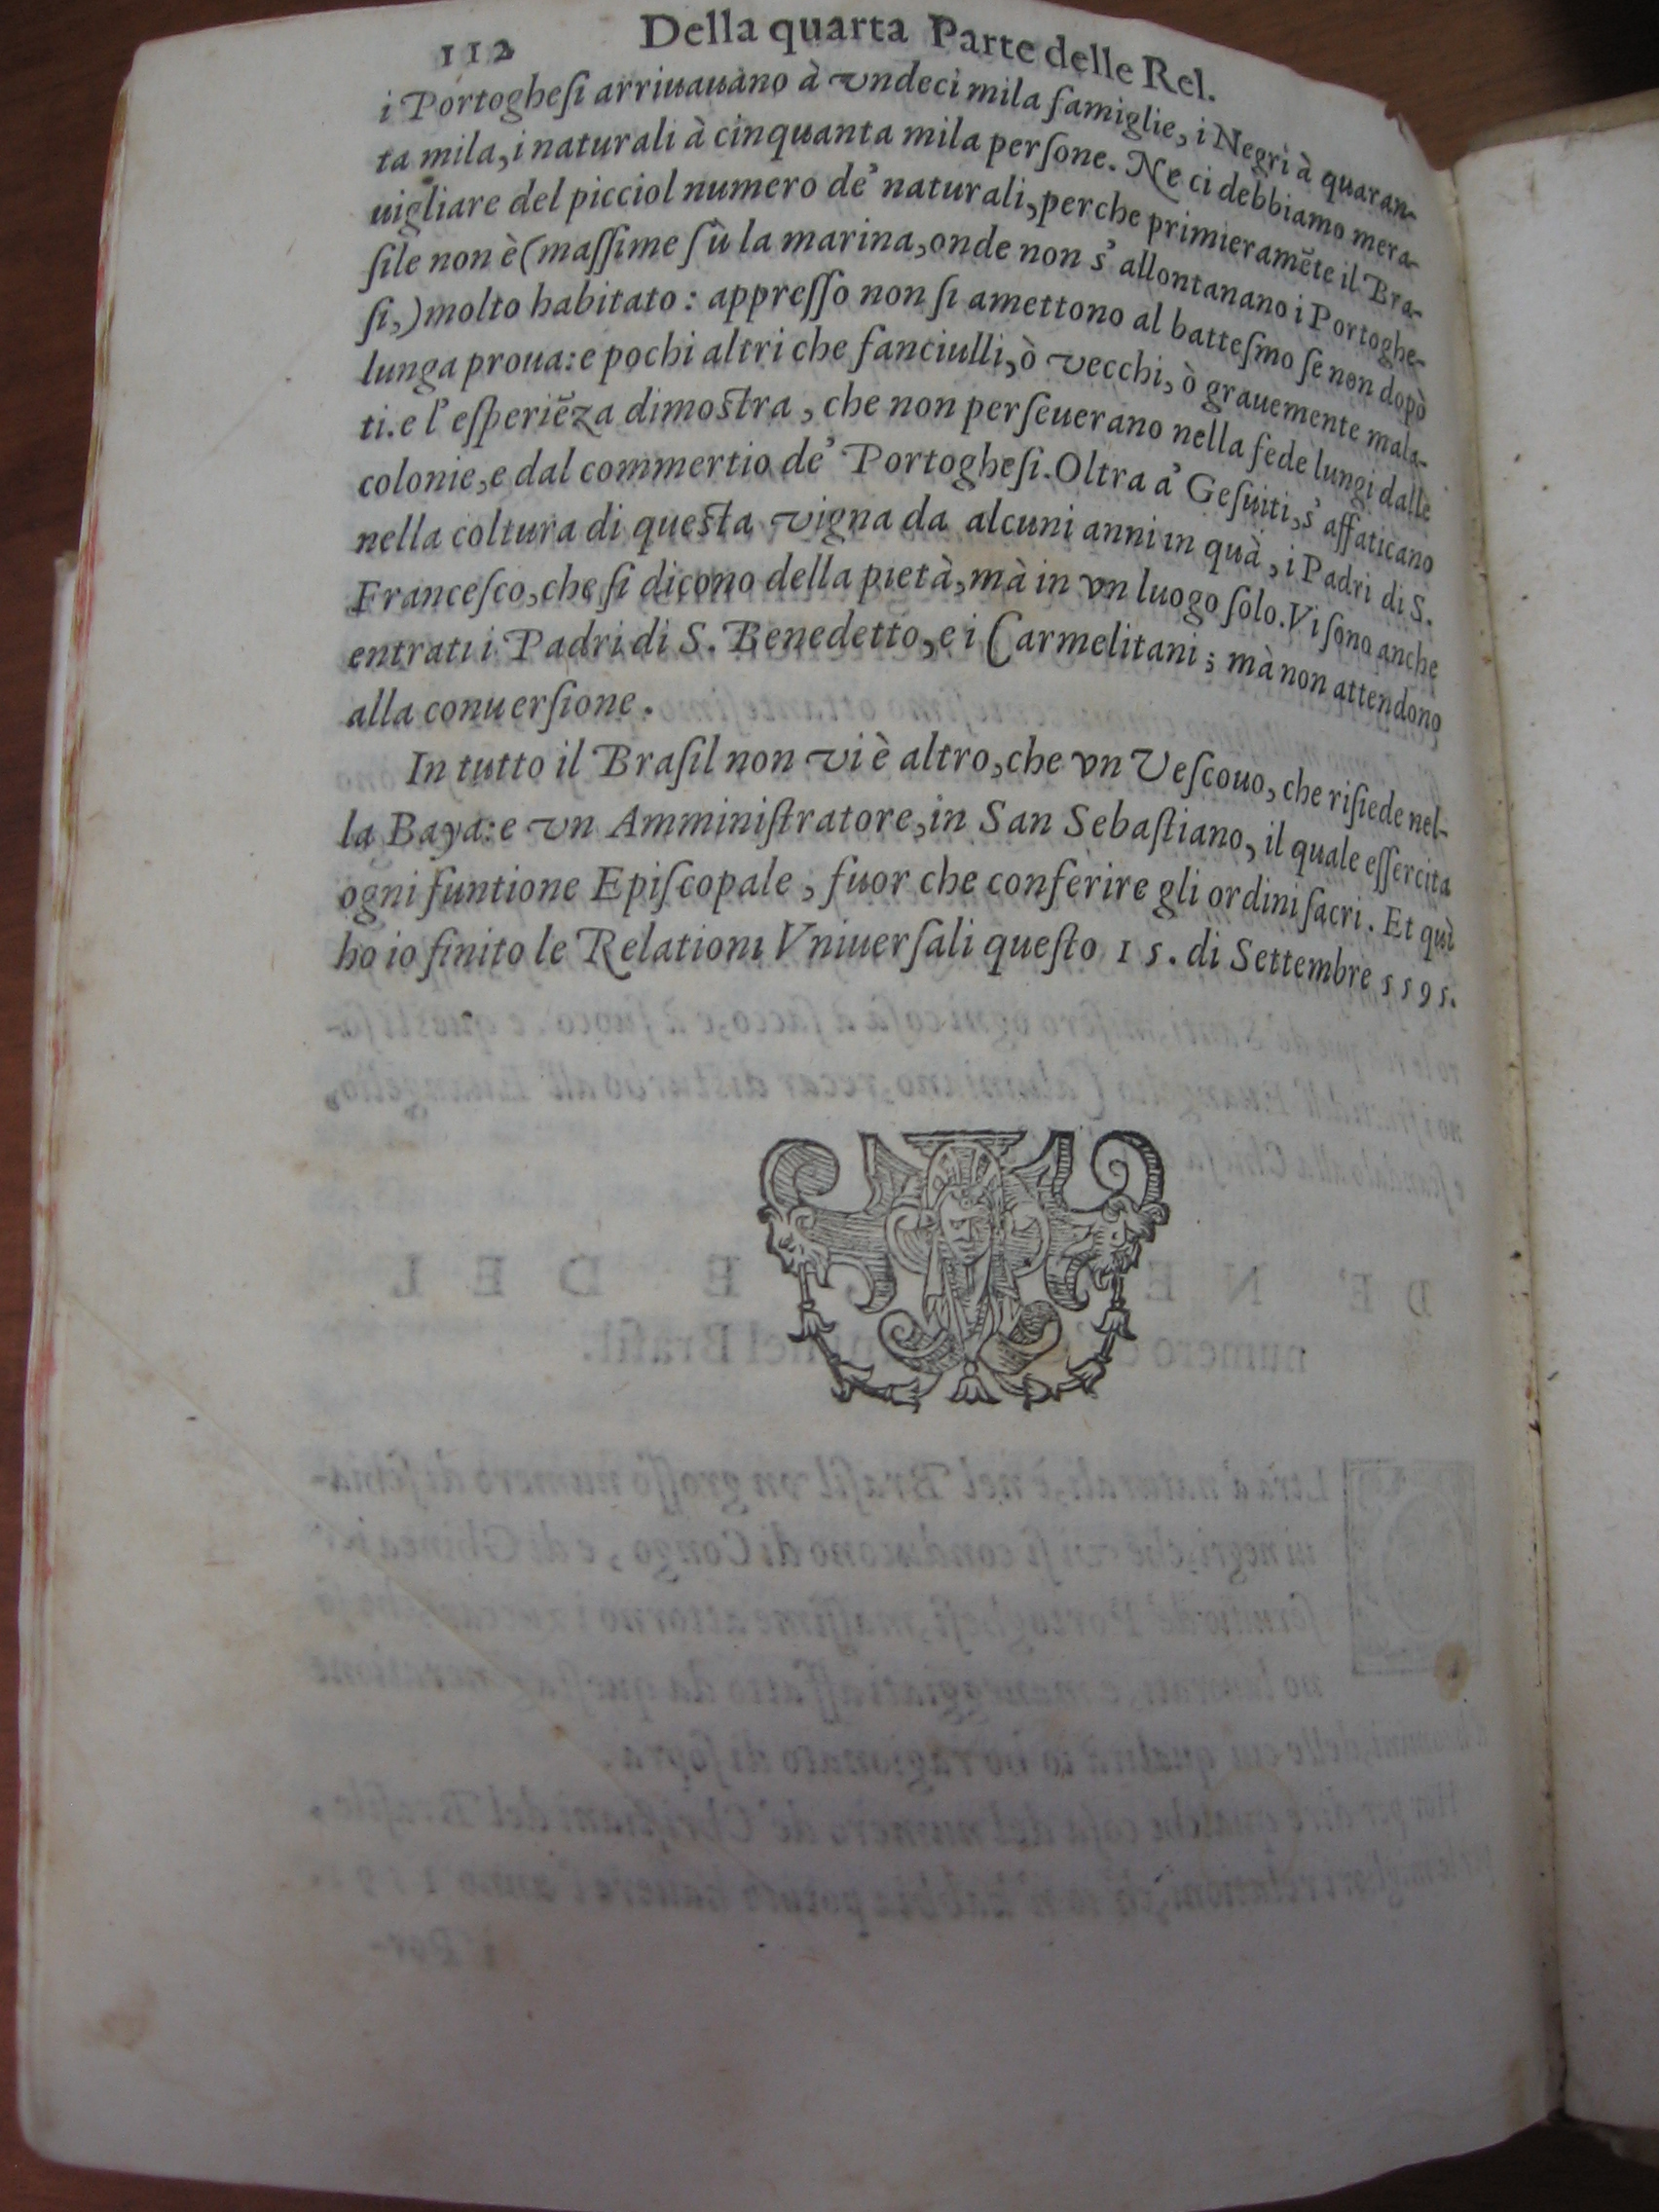 112 Della quarta Parte delle Rel.
i Portogheſi arriuauano à vndeci mila famiglie, i Negri à quaran-
ta mila, i naturali à cinquanta mila perſone. Ne ci debbiamo mera-
uigliare del picciol numero de' naturali, perche primieramẽte il Bra-
ſile non è (maſſime sù la marina, onde non s' allontanano i Portoghe-
ſi,) molto habitato: appreſſo non ſi amettono al batteſmo ſe non dopò
lunga proua: e pochi altri che fanciulli, ò vecchi, ò grauemente mala-
ti. e l' eſperiẽza dimoſtra, che non perſeuerano nella fede lungi dalle
colonie, e dal commertio de' Portogheſi. Oltra a' Geſuiti, s' affaticano
nella coltura di queſta vigna da alcuni anni in quà, i Padri di S.
Franceſco, che ſi dicono della pietà, mà in vn luogo ſolo. Vi ſono anche
entrati i Padri di S. Benedetto, e i Carmelitani; mà non attendono
alla conuerſione.
In tutto il Braſil non vi è altro, che vn Veſcouo, che riſiede nel-
la Baya: e vn Amminiſtratore, in San Sebaſtiano, il quale eſſercita
ogni funtione Epiſcopale, fuor che conferire gli ordini ſacri. Et quì
ho io finito le Relationi Vniuerſali queſto 15. di Settembre 1595.